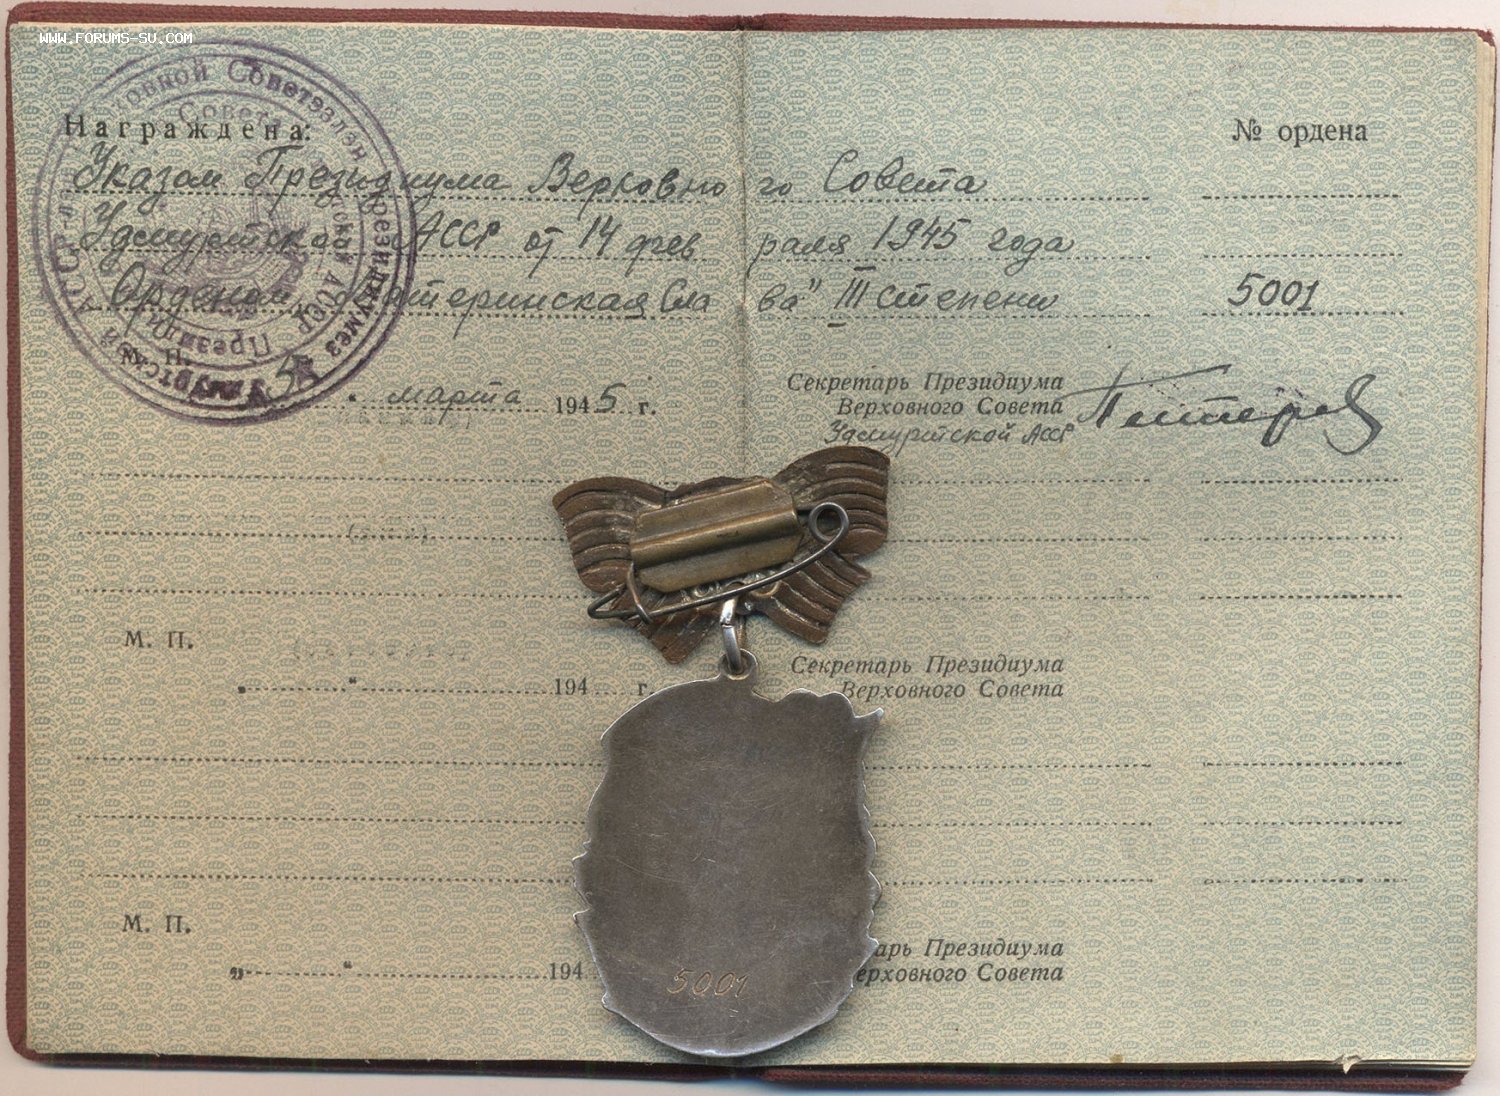 WWW.FORUMS-SU.COM
Награждена:
№ ордена
Указом Президиума Верховного Совета
Удмуртской АССР от 14 февраля 1945 года
Орденом „Материнская Слава" III степени 5001
М. П.
" марта 1945 г.
Секретарь Президиума
Верховного Совета
Удмуртской АССР
М. П.
„ " 194 г.
Секретарь Президиума
Верховного Совета
М. П.
„ " 194
арь Президиума
ерховного Совета
5001